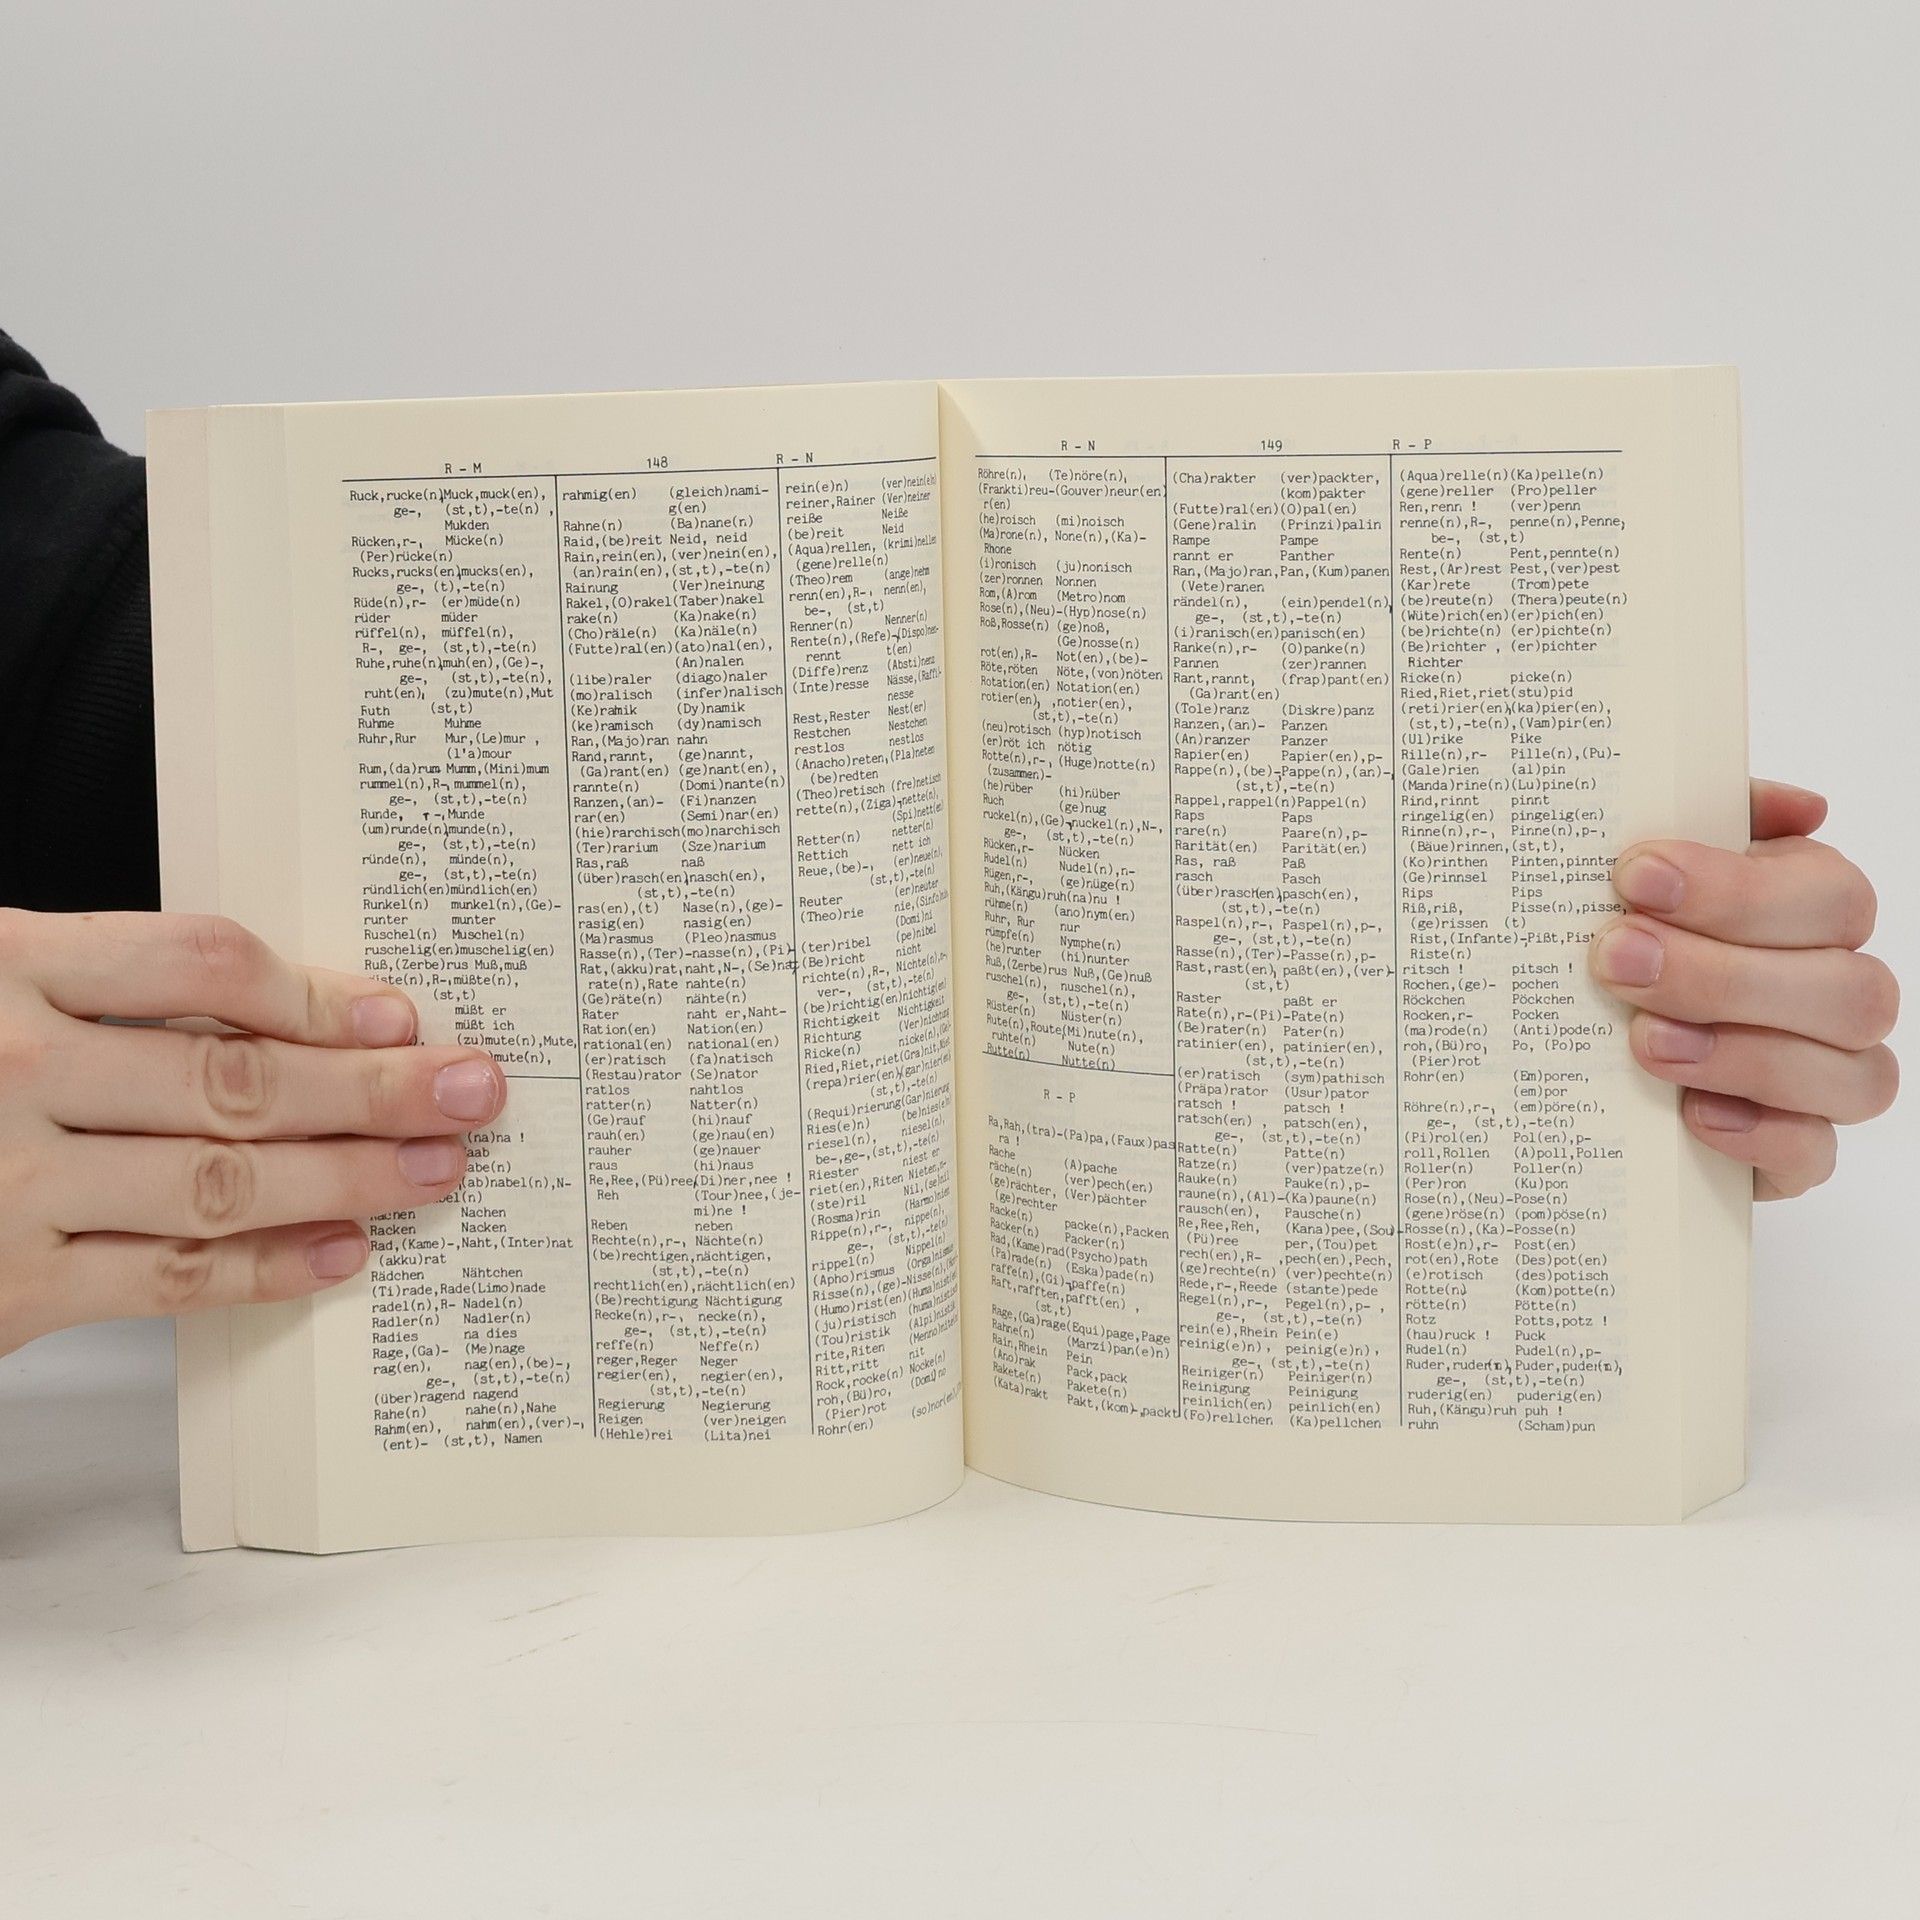 R - M 148 R - N
Ruck,rucke(n),Muck,muck(en),
ge-, (st,t),-te(n) ,
Mukden
Rücken,r-, Mücke(n)
(Per)rücke(n)
Rucks,rucks(en)mucks(en),
ge-, (t),-te(n)
Rüde(n),r- (er)müde(n)
rüder müder
rüffel(n), müffel(n),
R-, ge-, (st,t),-te(n)
Ruhe,ruhe(n)muh(en),(Ge)-,
ge-, (st,t),-te(n),
ruht(en), (zu)mute(n),Mut
Futh (st,t)
Ruhme Muhme
Ruhr,Rur Mur,(Le)mur ,
(l'a)mour
Rum,(da)rum Mumm,(Mini)mum
rummel(n),R-,mummel(n),
ge-, (st,t),-te(n)
Runde, r-,Munde
(um)runde(n)munde(n),
ge-, (st,t),-te(n)
ründe(n), münde(n),
ge-, (st,t),-te(n)
ründlich(en)mündlich(en)
Runkel(n) munkel(n),(Ge)-
runter munter
Ruschel(n) Muschel(n)
ruschelig(en)muschelig(en)
Ruß,(Zerbe)rus Muß,muß
müßte(n),
(st,t)
müßt er
müßt ich
(zu)mute(n),Mute,
(na)na !
(ab)nabel(n),N-
Nachen
Racken Nacken
Rad,(Kame)-,Naht,(Inter)nat
(akku)rat
Rädchen Nähtchen
(Ti)rade,Rade(Limo)nade
radel(n),R- Nadel(n)
Radler(n) Nadler(n)
Radies na dies
Rage,(Ga)- (Me)nage
rag(en), nag(en),(be)-,
ge-, (st,t),-te(n)
(über)ragend nagend
Rahe(n) nahe(n),Nahe
Rahm(en), nahm(en),(ver)-,
(ent)- (st,t), Namen
rahmig(en) (gleich)nami-
g(en)
Rahne(n) (Ba)nane(n)
Raid,(be)reit Neid, neid
Rain,rein(en),(ver)nein(en),
(an)rain(en),(st,t),-te(n)
Rainung (Ver)neinung
Rakel,(O)rakel(Taber)nakel
rake(n) (Ka)nake(n)
(Cho)räle(n) (Ka)näle(n)
(Futte)ral(en)(ato)nal(en),
(An)nalen
(libe)raler (diago)naler
(mo)ralisch (infer)nalisch
(Ke)ramik (Dy)namik
(ke)ramisch (dy)namisch
Ran,(Majo)ran nahn
Rand,rannt, (ge)nannt,
(Ga)rant(en) (ge)nant(en),
rannte(n) (Domi)nante(n)
Ranzen,(an)- (Fi)nanzen
rar(en) (Semi)nar(en)
(hie)rarchisch(mo)narchisch
(Ter)rarium (Sze)narium
Ras,raß naß
(über)rasch(en)nasch(en),
(st,t),-te(n)
ras(en),(t) Nase(n),(ge)-
rasig(en) nasig(en)
(Ma)rasmus (Pleo)nasmus
Rasse(n),(Ter)-nasse(n),(Pi)-
Rat,(akku)rat,naht,N-,(Se)nat,
rate(n),Rate nahte(n)
(Ge)räte(n) nähte(n)
Rater naht er,Naht-
Ration(en) Nation(en)
rational(en) national(en)
(er)ratisch (fa)natisch
(Restau)rator (Se)nator
ratlos nahtlos
ratter(n) Natter(n)
(Ge)rauf (hi)nauf
rauh(en) (ge)nau(en)
rauher (ge)nauer
raus (hi)naus
Re,Ree,(Pü)ree,(Di)ner,nee !
Reh (Tour)nee,(je-
mi)ne !
Reben neben
Rechte(n),r-, Nächte(n)
(be)rechtigen,nächtigen,
(st,t),-te(n)
rechtlich(en),nächtlich(en)
(Be)rechtigung Nächtigung
Recke(n),r-, necke(n),
ge-, (st,t),-te(n)
reffe(n) Neffe(n)
reger,Reger Neger
regier(en), negier(en),
(st,t),-te(n)
Regierung Negierung
Reigen (ver)neigen
(Hehle)rei (Lita)nei
rein(e)n) (ver)nein(e)n)
reiner,Rainer (Ver)neiner
reiße Neiße
(be)reit Neid
(Aqua)rellen, (krimi)nellen
(gene)relle(n)
(Theo)rem (ange)nehm
renn(en),R-, nenn(en),
be-, (st,t)
Renner(n) Nenner(n)
Rente(n),(Refe)-,(Dispo)nen-
rennt t(en)
(Diffe)renz (Absti)nenz
(Inte)resse Nässe,(Raffi)-
nesse
Rest,Rester Nest(er)
Restchen Nestchen
restlos nestlos
(Anacho)reten,(Pla)neten
(be)redten
(Theo)retisch (fre)netisch
rette(n),(Ziga)-,nette(n),
(Spi)nett(en)
Retter(n) netter(n)
Rettich nett ich
Reue,(be)-, (er)neue(n),
(st,t),-te(n)
Reuter (er)neuter
(Theo)rie nie,(Sinfo)nie
(Domi)ni
(ter)ribel (pe)nibel
(Be)richt nicht
richte(n),R-, Nichte(n),n-,
ver-, (st,t),-te(n)
(be)richtig(en)nichtig(en)
Richtigkeit Nichtigkeit
Richtung (Ver)nichtung
Ricke(n) nicke(n),(Ge)-
Ried,Riet,riet(Gra)nit,Niet
(repa)rier(en)(gar)nier(en)
(st,t),-te(n)
(Requi)rierung(Gar)nierung
Ries(e)n) (be)nies(e)n)
riesel(n), niesel(n),
be-,ge-,(st,t),-te(n)
Riester niest er
riet(en),Riten Nieten,n-
(ste)ril Nil,(se)nil
(Rosma)rin (Harmo)nien
Rippe(n),r-, nippe(n),
ge-, (st,t),-te(n)
rippel(n) Nippel(n)
(Apho)rismus (Orga)nismus
Risse(n),(ge)-Nisse(n),
(Humo)rist(en)(Huma)nist(en)
(ju)ristisch (huma)nistisch
(Tou)ristik (Alpi)nistik
rite,Riten (Menno)niten
Ritt,ritt nit
Rock,rocke(n) Nocke(n)
roh,(Bü)ro, (Domi)no
(Pier)rot
Rohr(en) (so)nor(en),
R - N 149 R - P
Röhre(n), (Te)nöre(n),
(Frankti)reu-(Gouver)neur(en)
r(en)
(he)roisch (mi)noisch
(Ma)rone(n), None(n),(Ka)-
Rhone
(i)ronisch (ju)nonisch
(zer)ronnen Nonnen
Rom,(A)rom (Metro)nom
Rose(n),(Neu)-(Hyp)nose(n)
Roß,Rosse(n) (ge)noß,
(Ge)nosse(n)
rot(en),R- Not(en),(be)-
Röte,röten Nöte,(von)nöten
Rotation(en) Notation(en)
rotier(en), ,notier(en),
(st,t),-te(n)
(neu)rotisch (hyp)notisch
(er)röt ich nötig
Rotte(n),r-, (Huge)notte(n)
(zusammen)-
(he)rüber (hi)nüber
Ruch (ge)nug
ruckel(n),(Ge)-,nuckel(n),N-,
ge-, (st,t),-te(n)
Rücken,r- Nücken
Rudel(n) Nudel(n),n-
Rügen,r-, (ge)nüge(n)
Ruh,(Kängu)ruh(na)nu !
rühme(n) (ano)nym(en)
Ruhr, Rur nur
rümpfe(n) Nymphe(n)
(he)runter (hi)nunter
Ruß,(Zerbe)rus Nuß,(Ge)nuß
ruschel(n), nuschel(n),
ge-, (st,t),-te(n)
Rüster(n) Nüster(n)
Rute(n),Route(Mi)nute(n),
ruhte(n) Nute(n)
Rutte(n) Nutte(n)
R - P
Ra,Rah,(tra)-(Pa)pa,(Faux)pas
ra !
Rache (A)pache
räche(n) (ver)pech(en)
(ge)rächter, (Ver)pächter
(ge)rechter
Racke(n) packe(n),Packen
Racker(n) Packer(n)
Rad,(Kame)rad(Psycho)path
(Pa)rade(n) (Eska)pade(n)
raffe(n),(Gi)-,paffe(n)
Raft,rafften,pafft(en) ,
(st,t)
Rage,(Ga)rage(Equi)page,Page
Rahne(n) (Marzi)pan(e)n)
Rain,Rhein Pein
(Ano)rak Pack,pack
Rakete(n) Pakete(n)
(Kata)rakt Pakt,(kom)-,packt
(Cha)rakter (ver)packter,
(kom)pakter
(Futte)ral(en)(O)pal(en)
(Gene)ralin (Prinzi)palin
Rampe Pampe
rannt er Panther
Ran,(Majo)ran,Pan,(Kum)panen
(Vete)ranen
rändel(n), (ein)pendel(n),
ge-, (st,t),-te(n)
(i)ranisch(en)panisch(en)
Ranke(n),r- (O)panke(n)
Pannen (zer)rannen
Rant,rannt, (frap)pant(en)
(Ga)rant(en)
(Tole)ranz (Diskre)panz
Ranzen,(an)- Panzen
(An)ranzer Panzer
Rapier(en) Papier(en),p-
Rappe(n),(be)-,Pappe(n),(an)-,
(st,t),-te(n)
Rappel,rappel(n)Pappel(n)
Raps Paps
rare(n) Paare(n),p-
Rarität(en) Parität(en)
Ras, raß Paß
rasch Pasch
(über)rasch(en)pasch(en),
(st,t),-te(n)
Raspel(n),r-, Paspel(n),p-,
ge-, (st,t),-te(n)
Rasse(n),(Ter)-Passe(n),p-
Rast,rast(en), paßt(en),(ver)-
(st,t)
Raster paßt er
Rate(n),r-(Pi)-Pate(n)
(Be)rater(n) Pater(n)
ratinier(en), patinier(en),
(st,t),-te(n)
(er)ratisch (sym)pathisch
(Präpa)rator (Usur)pator
ratsch ! patsch !
ratsch(en) , patsch(en),
ge-, (st,t),-te(n)
Ratte(n) Patte(n)
Ratze(n) (ver)patze(n)
Rauke(n) Pauke(n),p-
raune(n),(Al)-(Ka)paune(n)
rausch(en), Pausche(n)
Re,Ree,Reh, (Kana)pee,(Sou)-
(Pü)ree per,(Tou)pet
rech(en),R- ,pech(en),Pech,
(ge)rechte(n) (ver)pechte(n)
Rede,r-,Reede (stante)pede
Regel(n),r-, Pegel(n),p- ,
ge-, (st,t),-te(n)
rein(e),Rhein Pein(e)
reinig(en), peinig(en),
ge-, (st,t),-te(n)
Reiniger(n) Peiniger(n)
Reinigung Peinigung
reinlich(en) peinlich(en)
(Fo)rellchen (Ka)pellchen
(Aqua)relle(n)(Ka)pelle(n)
(gene)reller (Pro)peller
Ren,renn ! (ver)penn
renne(n),R-, penne(n),Penne,
be-, (st,t)
Rente(n) Pent,pennte(n)
Rest,(Ar)rest Pest,(ver)pest
(Kar)rete (Trom)pete
(be)reute(n) (Thera)peute(n)
(Wüte)rich(en)(er)pich(en)
(be)richte(n) (er)pichte(n)
(Be)richter , (er)pichter
Richter
Ricke(n) picke(n)
Ried,Riet,riet(stu)pid
(reti)rier(en),(ka)pier(en),
(st,t),-te(n),(Vam)pir(en)
(Ul)rike Pike
Rille(n),r- Pille(n),(Pu)-
(Gale)rien (al)pin
(Manda)rine(n)(Lu)pine(n)
Rind,rinnt pinnt
ringelig(en) pingelig(en)
Rinne(n),r-, Pinne(n),p-,
(Bäue)rinnen,(st,t),
(Ko)rinthen Pinten,pinnten
(Ge)rinnsel Pinsel,pinsel
Rips Pips
Riß,riß, Pisse(n),pisse,
(ge)rissen (t)
Rist,(Infante)-Pißt,
Riste(n)
ritsch ! pitsch !
Rochen,(ge)- pochen
Röckchen Pöckchen
Rocken,r- Pocken
(ma)rode(n) (Anti)pode(n)
roh,(Bü)ro, Po, (Po)po
(Pier)rot
Rohr(en) (Em)poren,
(em)por
Röhre(n),r-, (em)pöre(n),
ge-, (st,t),-te(n)
(Pi)rol(en) Pol(en),p-
roll,Rollen (A)poll,Pollen
Roller(n) Poller(n)
(Per)ron (Ku)pon
Rose(n),(Neu)-Pose(n)
(gene)röse(n) (pom)pöse(n)
Rosse(n),(Ka)-Posse(n)
Rost(e)n),r- Post(en)
rot(en),Rote (Des)pot(en)
(e)rotisch (des)potisch
Rotte(n) (Kom)potte(n)
rötte(n) Pötte(n)
Rotz Potts,potz !
(hau)ruck ! Puck
Rudel(n) Pudel(n),p-
Ruder,ruder(n),Puder,puder(n),
ge-, (st,t),-te(n)
ruderig(en) puderig(en)
Ruh,(Kängu)ruh puh !
ruhn (Scham)pun